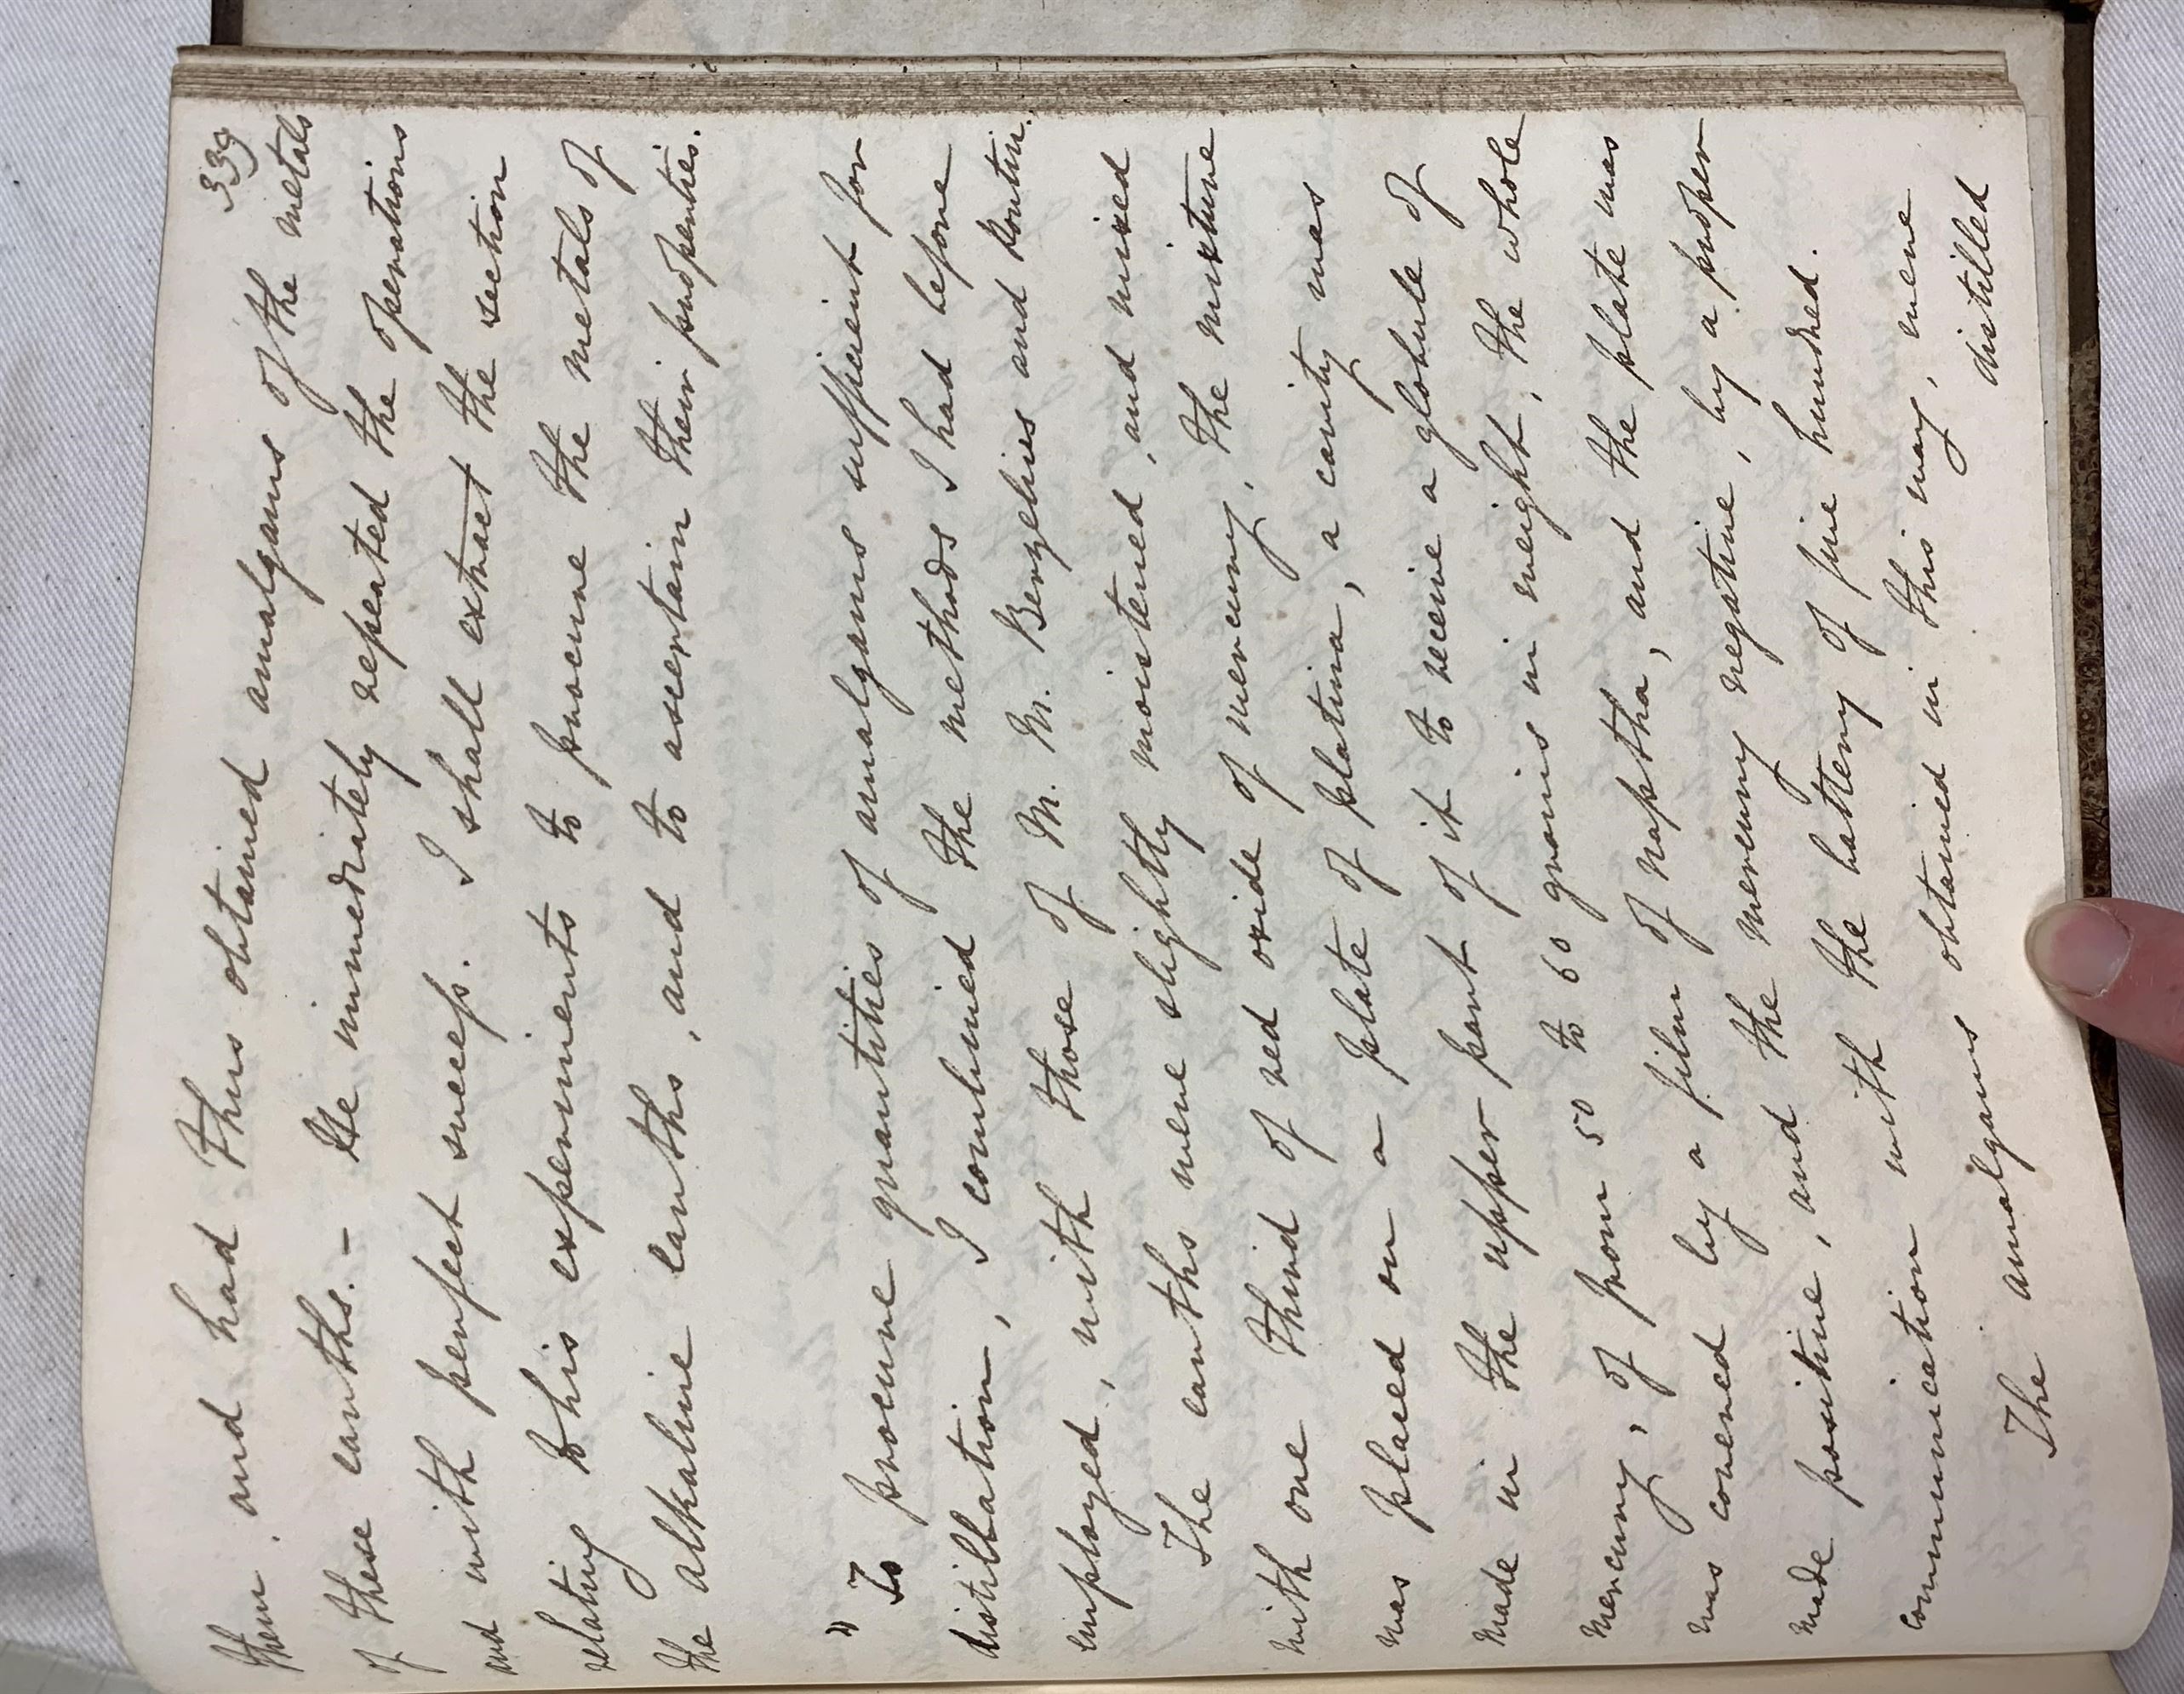 339
them, and had thus obtained amalgams of the metals
of these earths. - He immediately repeated the operations
and with perfect success. I shall extract the section
relating to his experiments to procure the metals of
the alkaline earths, and to ascertain their properties.
" To procure quantities of amalgams sufficient for
distillation, I combined the methods I had before
employed, with those of M. M. Berzelius and Pontin.
The earths were slightly moistened, and mixed
with one third of red oxide of mercury, the mixture
was placed on a plate of platina, a cavity was
made in the upper part of it to receive a globule of
mercury, of from 50 to 60 grains in weight, the whole
was covered by a film of naptha, and the plate was
made positive, and the mercury negative, by a proper
communication with the battery of five hundred.
The amalgams obtained in this way, were
distilled